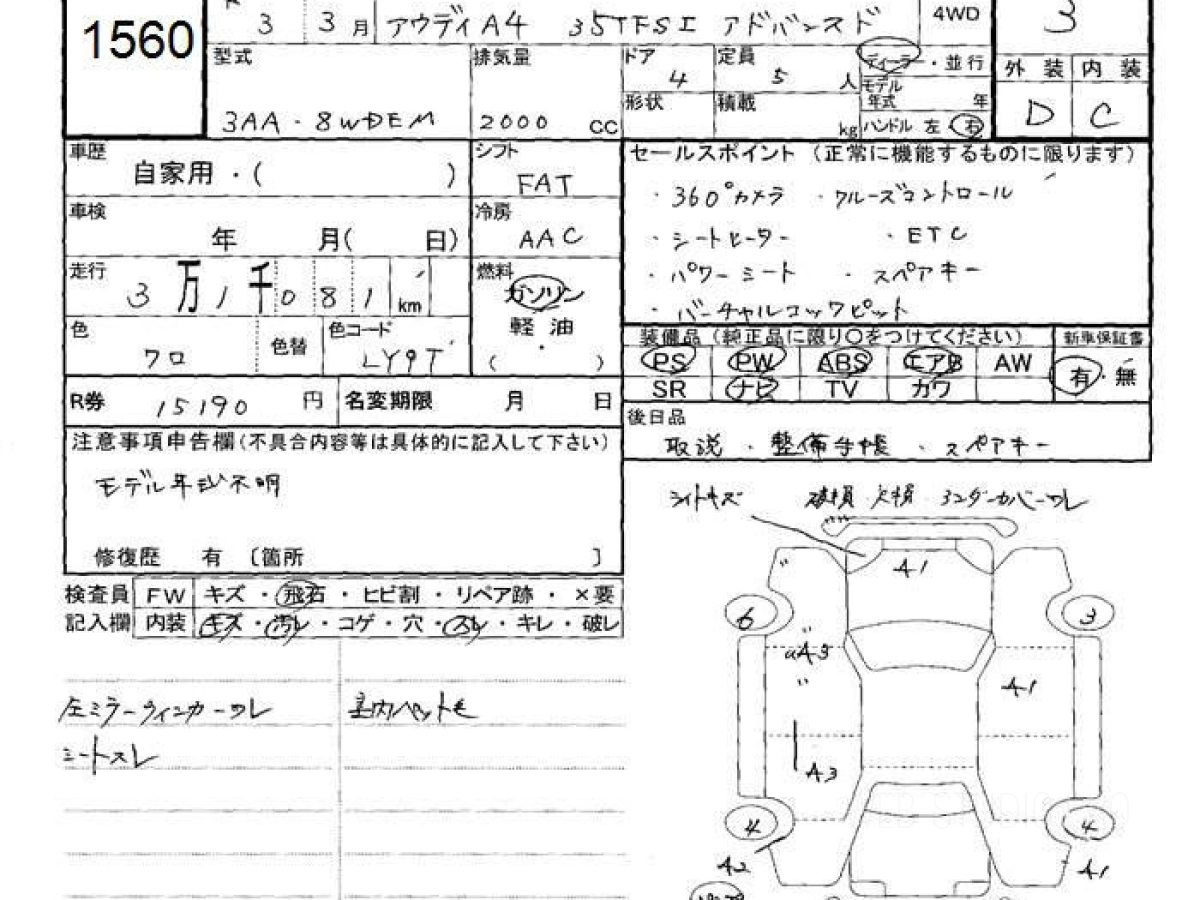 1560
R 3 3月 アウディA4 35TFSI アドバンスド 4WD 3
型式 3AA-8WDEM
排気量 2000 CC
ドア 4
定員 5 人
ディーラー・並行
形状
積載 kg
モデル年式 年
ハンドル 左 右
外装 内装
D C
車歴 自家用・( )
シフト FAT
車検 年 月( 日)
冷房 AAC
走行 3万1千081km
燃料 ガソリン
軽油
・
( )
色 クロ 色替
色コード LY9T
R券 15190 円
名変期限 月 日
セールスポイント(正常に機能するものに限ります)
・360°カメラ ・クルーズコントロール
・シートヒーター ・ETC
・パワーシート ・スペアキー
・バーチャルコックピット
装備品(純正品に限り〇をつけてください) 新車保証書
PS PW ABS エアB AW 有・無
SR ナビ TV カワ
後日品
取説・整備手帳・スペアキー
注意事項申告欄(不具合内容等は具体的に記入して下さい)
モデル年式不明
修復歴 有 〔箇所 〕
検査員 FW キズ・飛石・ヒビ割・リペア跡・×要
記入欄 内装 キズ・汚レ・コゲ・穴・スレ・キレ・破レ
左ミラーウィンカーワレ 室内ペット毛
シートスレ
ライトキズ 破損 欠損 アンダーカバーワレ
A1
6 3
A3
A1
A3
4 4
A2 A1